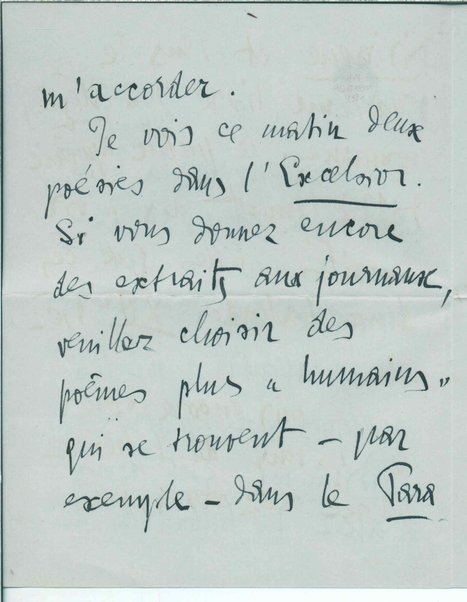 m'accorder.
Je vois ce matin deux
poésies dans l'Excelsior.
Si vous donnez encore
des extraits aux journaux,
veuillez choisir des
poèmes plus « humains »
qui se trouvent – par
exemple – dans le Para